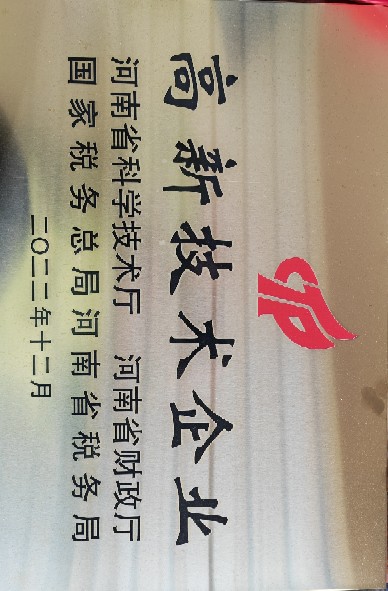 高新技术企业
河南省科学技术厅 河南省财政厅
国家税务总局河南省税务局
二〇二二年十二月